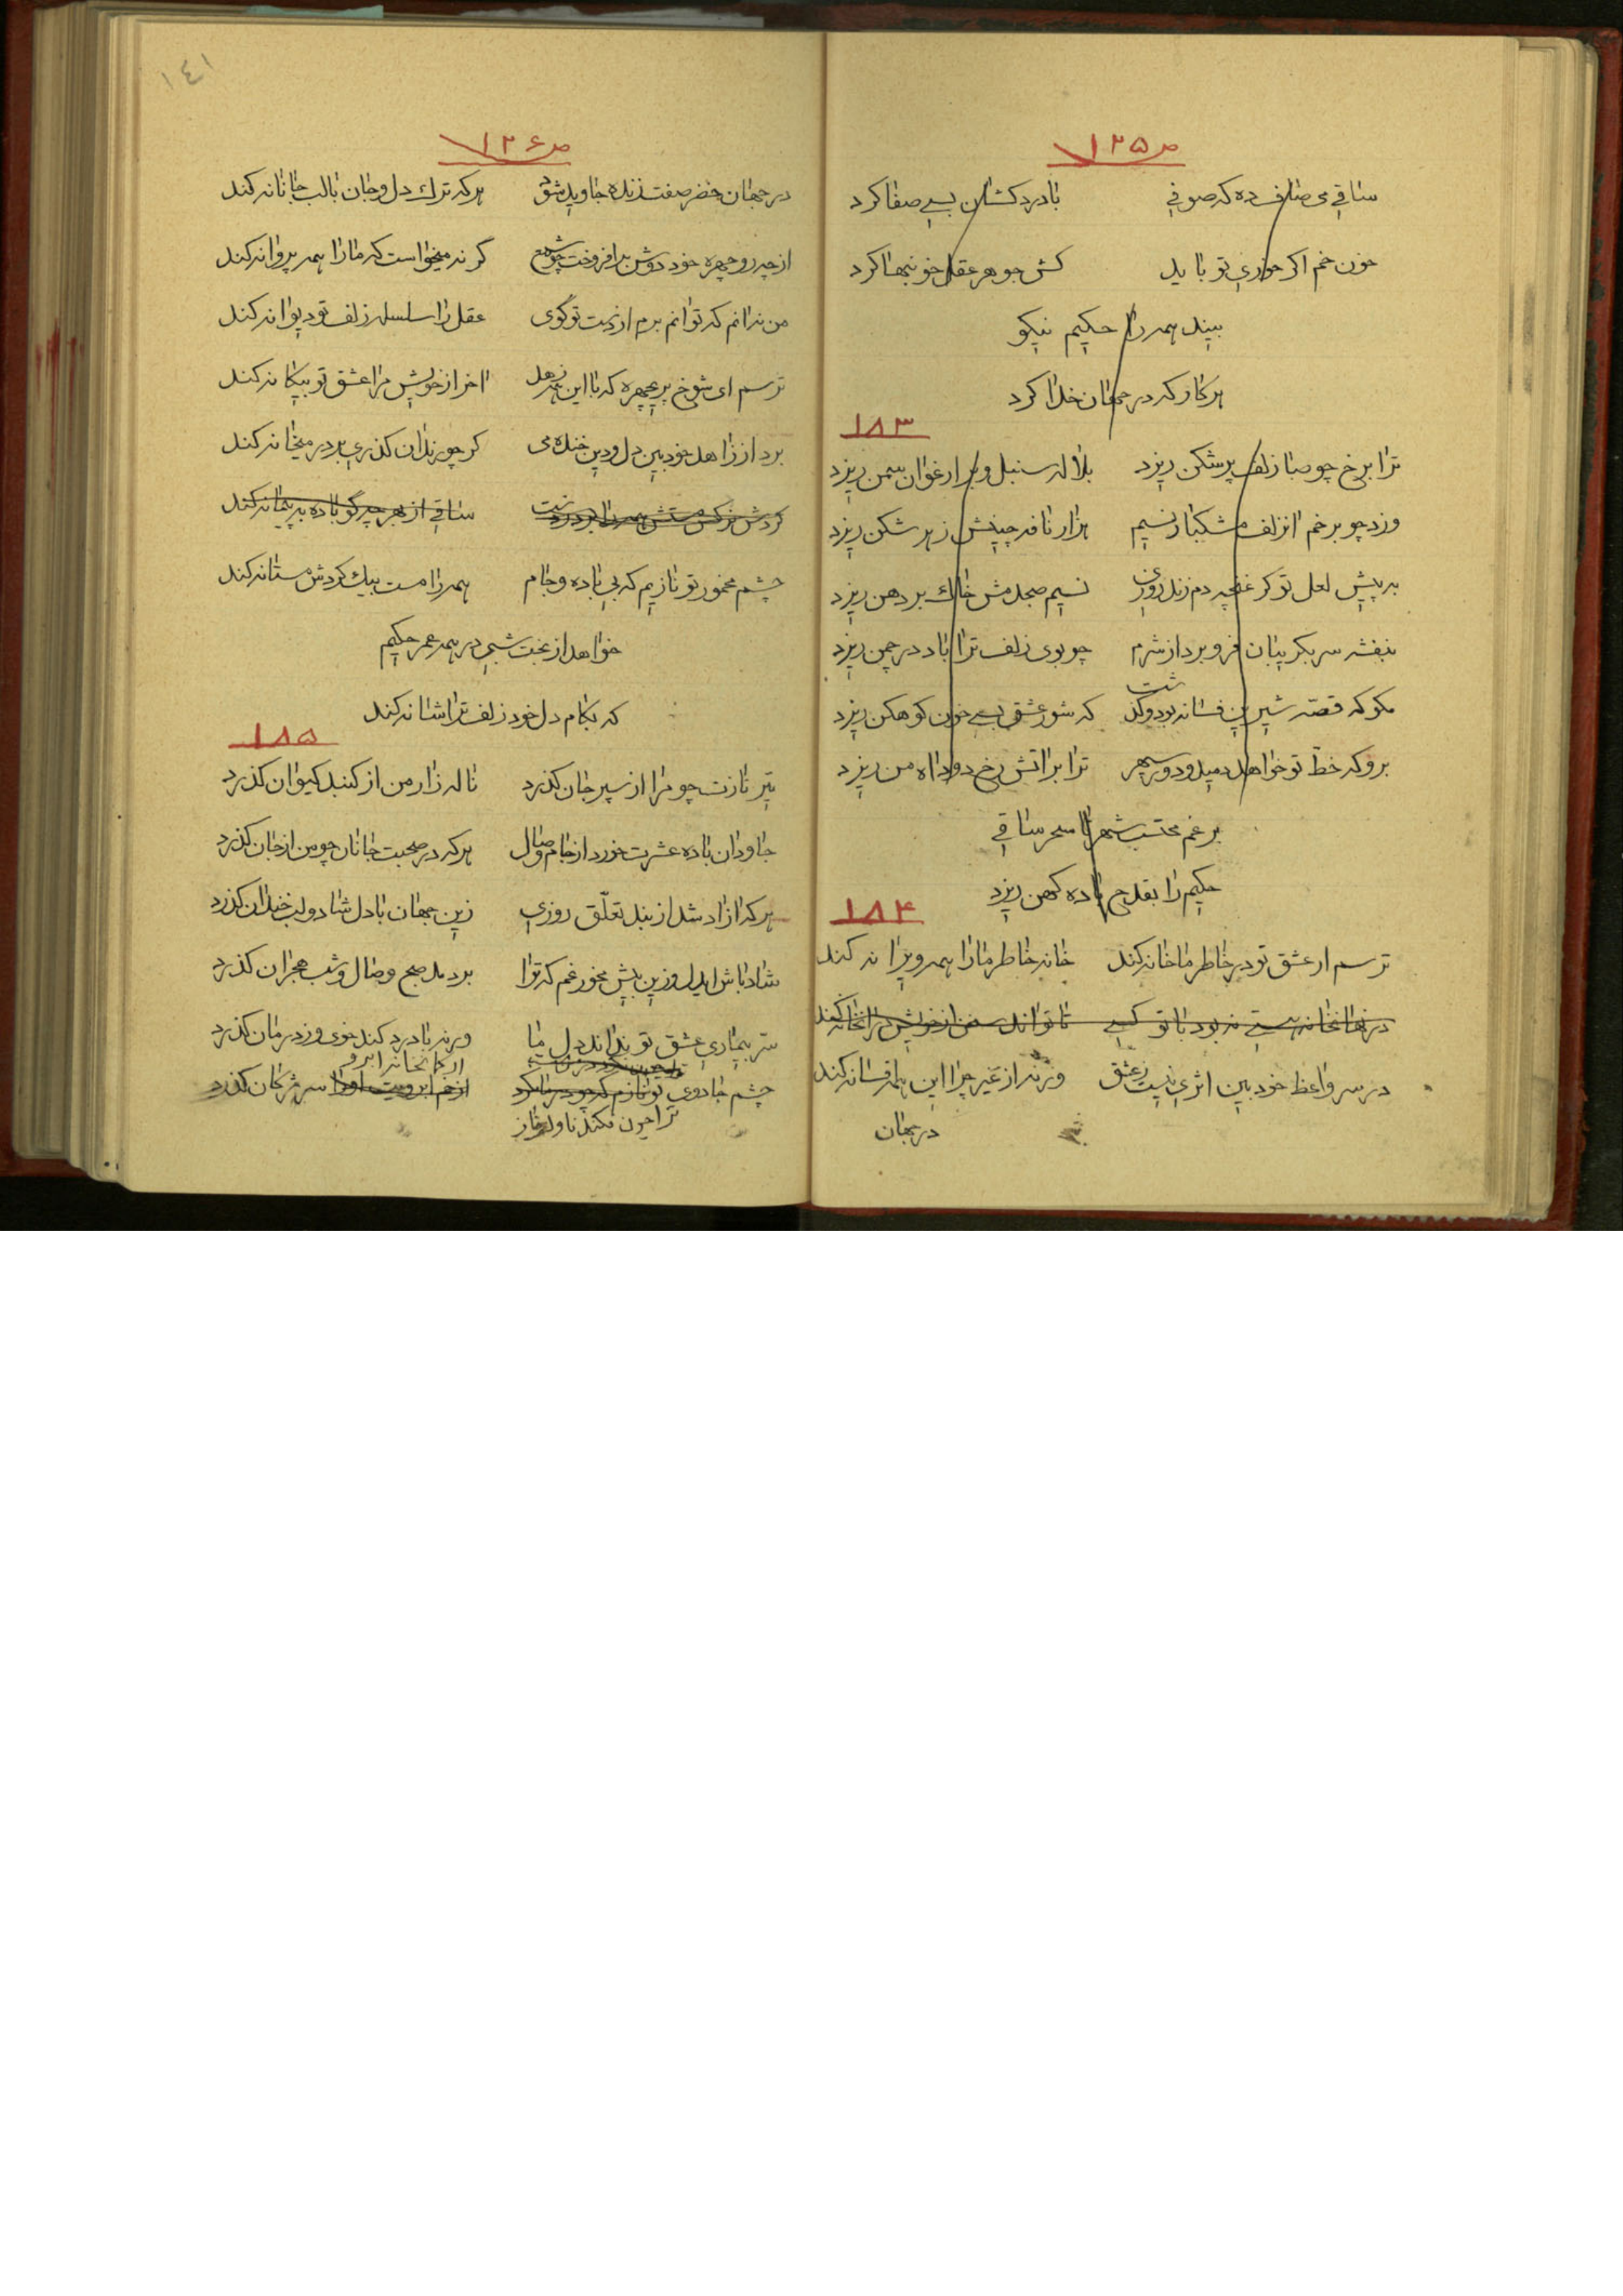 ص ۱۲۵
ساقی می صاف ده که صوفی بادردکشان بسی صفا کرد
خون خم اگر خوری تو باید کش جوهر عقل خونبها کرد
بیند همه را حکیم نیکو
هر کار که در جهان خدا کرد
۱۸۳
ترا برخ چو صبا زلف پرشکن ریزد بلاله سنبل و بر ارغوان سمن ریزد
وزد چو بر خم انزلف مشکبار نسیم هزار نافه چینش ز هر شکن ریزد
به پیش لعل تو گر غنچه دم زند روزی نسیم صبحدمش خاك بر دهن ریزد
بنفشه سر بگریبان فرو برد از شرم چو بوی زلف ترا باد در چمن ریزد
مگو که قصّه شیرین فسانه بود و گذشت که شور عشق بسی خون کوهکن ریزد
برو که خطّ تو خواهد دمید و دور سپهر ترا بر اتش رخ دود اه من ریزد
برغم محتسب شهر تا سحر ساقی
حکیم را بقدح باده کهن ریزد
۱۸۴
ترسم ار عشق تو در خاطر ما خانه کند خانه خاطر ما را همه ویرانه کند
در نهانخانه هستی نه بود با تو کسی تا تواند سخن از خویش در انخانه کند
در سر واعظ خود بین اثری نیست ز عشق ورنه از غیر چرا این همه افسانه کند
در جهان
۱٤۱
ص ۱۲۶
در جهان خضر صفت زنده جاوید شود هر که ترك دل و جان بالب جانانه کند
از چه رو چهره خود دوش برافروخت چو شمع گر نه میخواست که ما را همه پروانه کند
من ندانم که توانم برم از دست تو گوی عقل را سلسله زلف تو دیوانه کند
ترسم ای شوخ پریچهره که با این همه زهد اخر از خویش مرا عشق تو بیگانه کند
برد از زاهد خودبین دل و دین خنده می گر چو رندان گذری بر در میخانه کند
گردش نرگس مستش همه را برد ز دست ساقی از بهر چه گو باده به پیمانه کند
چشم مخمور تو نازیم که بی باده و جام همه را مست بیك گردش مستانه کند
خواهد از بخت شبی در همه عمر حکیم
که بکام دل خود زلف ترا شانه کند
۱۸۵
تیر نازت چو مرا از سپر جان گذرد ناله زار من از گنبد کیوان گذرد
جاودان باده عشرت خورد از جام وصال هر که در صحبت جانان چو من از جان گذرد
هر که ازاد شد از بند تعلّق روزی زین جهان با دل شاد و لب خندان گذرد
شاد باش ایدل و زین بیش مخور غم که ترا بردمد صبح وصال و شب هجران گذرد
سرّ بیماری عشق تو بداند دل ما ورنه با درد کند خوی و ز درمان گذرد
چشم جادوی تو نازم که چو از خم ابرویت او را سر مژگان گذرد
ترا چون فکند ناوك ناز از کمانخانه ابرو